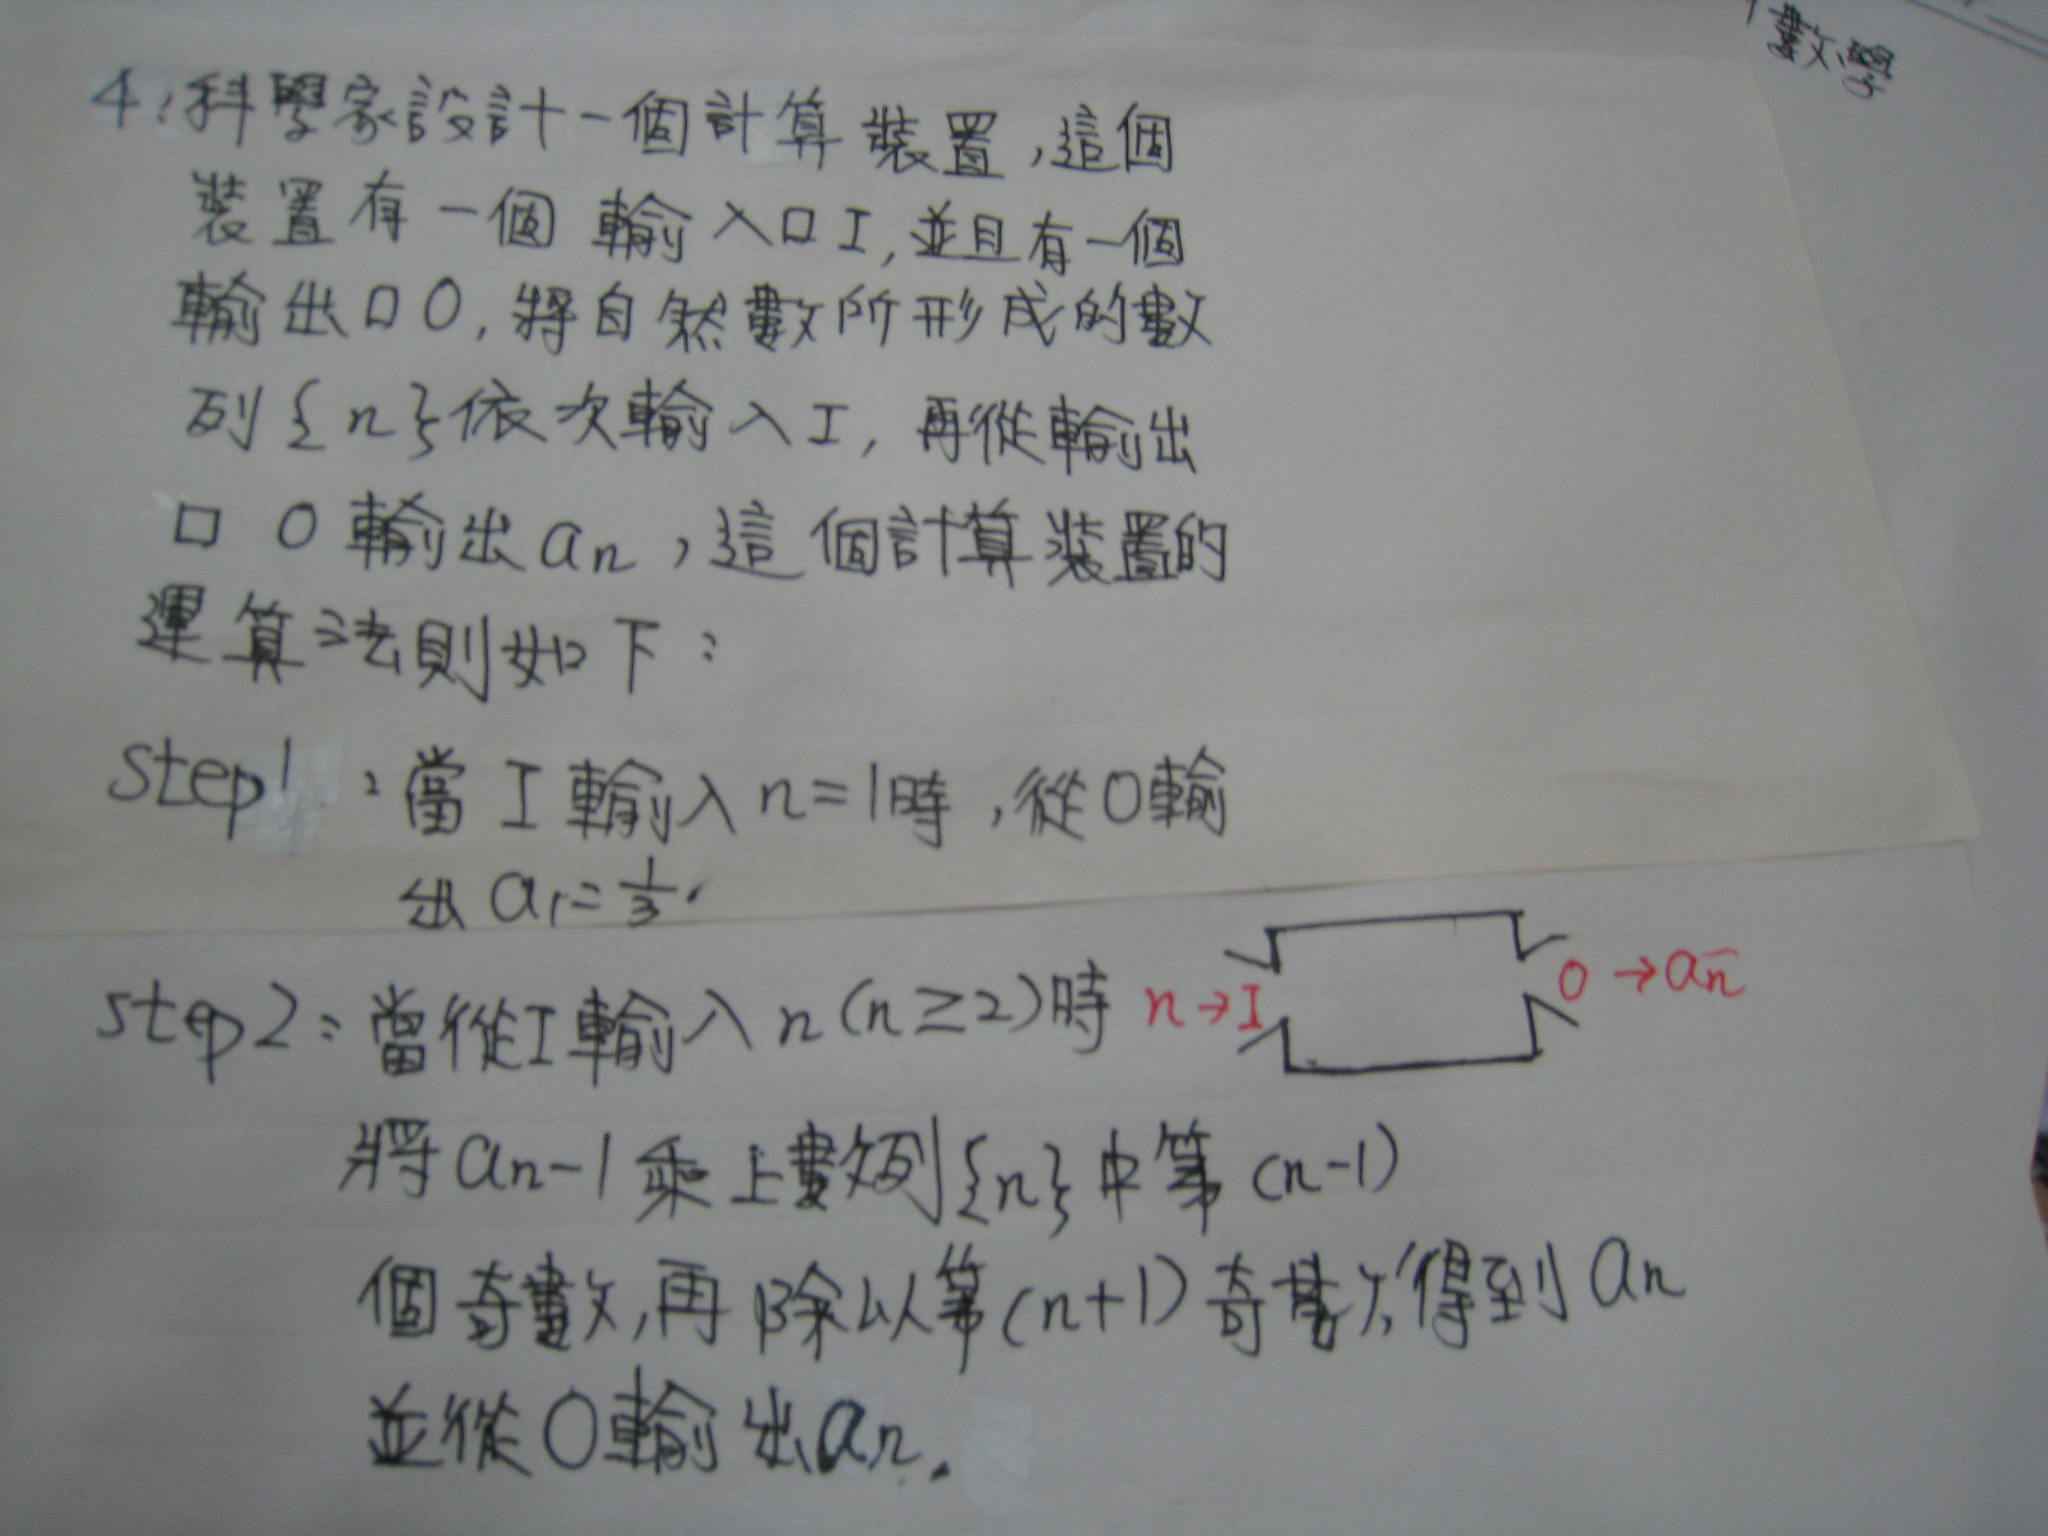 數學
4.科學家設計一個計算裝置,這個
裝置有一個輸入口I,並且有一個
輸出口O,將自然數所形成的數
列{n}依次輸入I,再從輸出
口O輸出an,這個計算裝置的
運算法則如下:
step1:當I輸入n=1時,從O輸
出a1=1/3.
step2:當從I輸入n(n≥2)時
n→I
O→an
將an-1乘上數列{n}中第(n-1)
個奇數,再除以第(n+1)奇數,得到an
並從O輸出an.